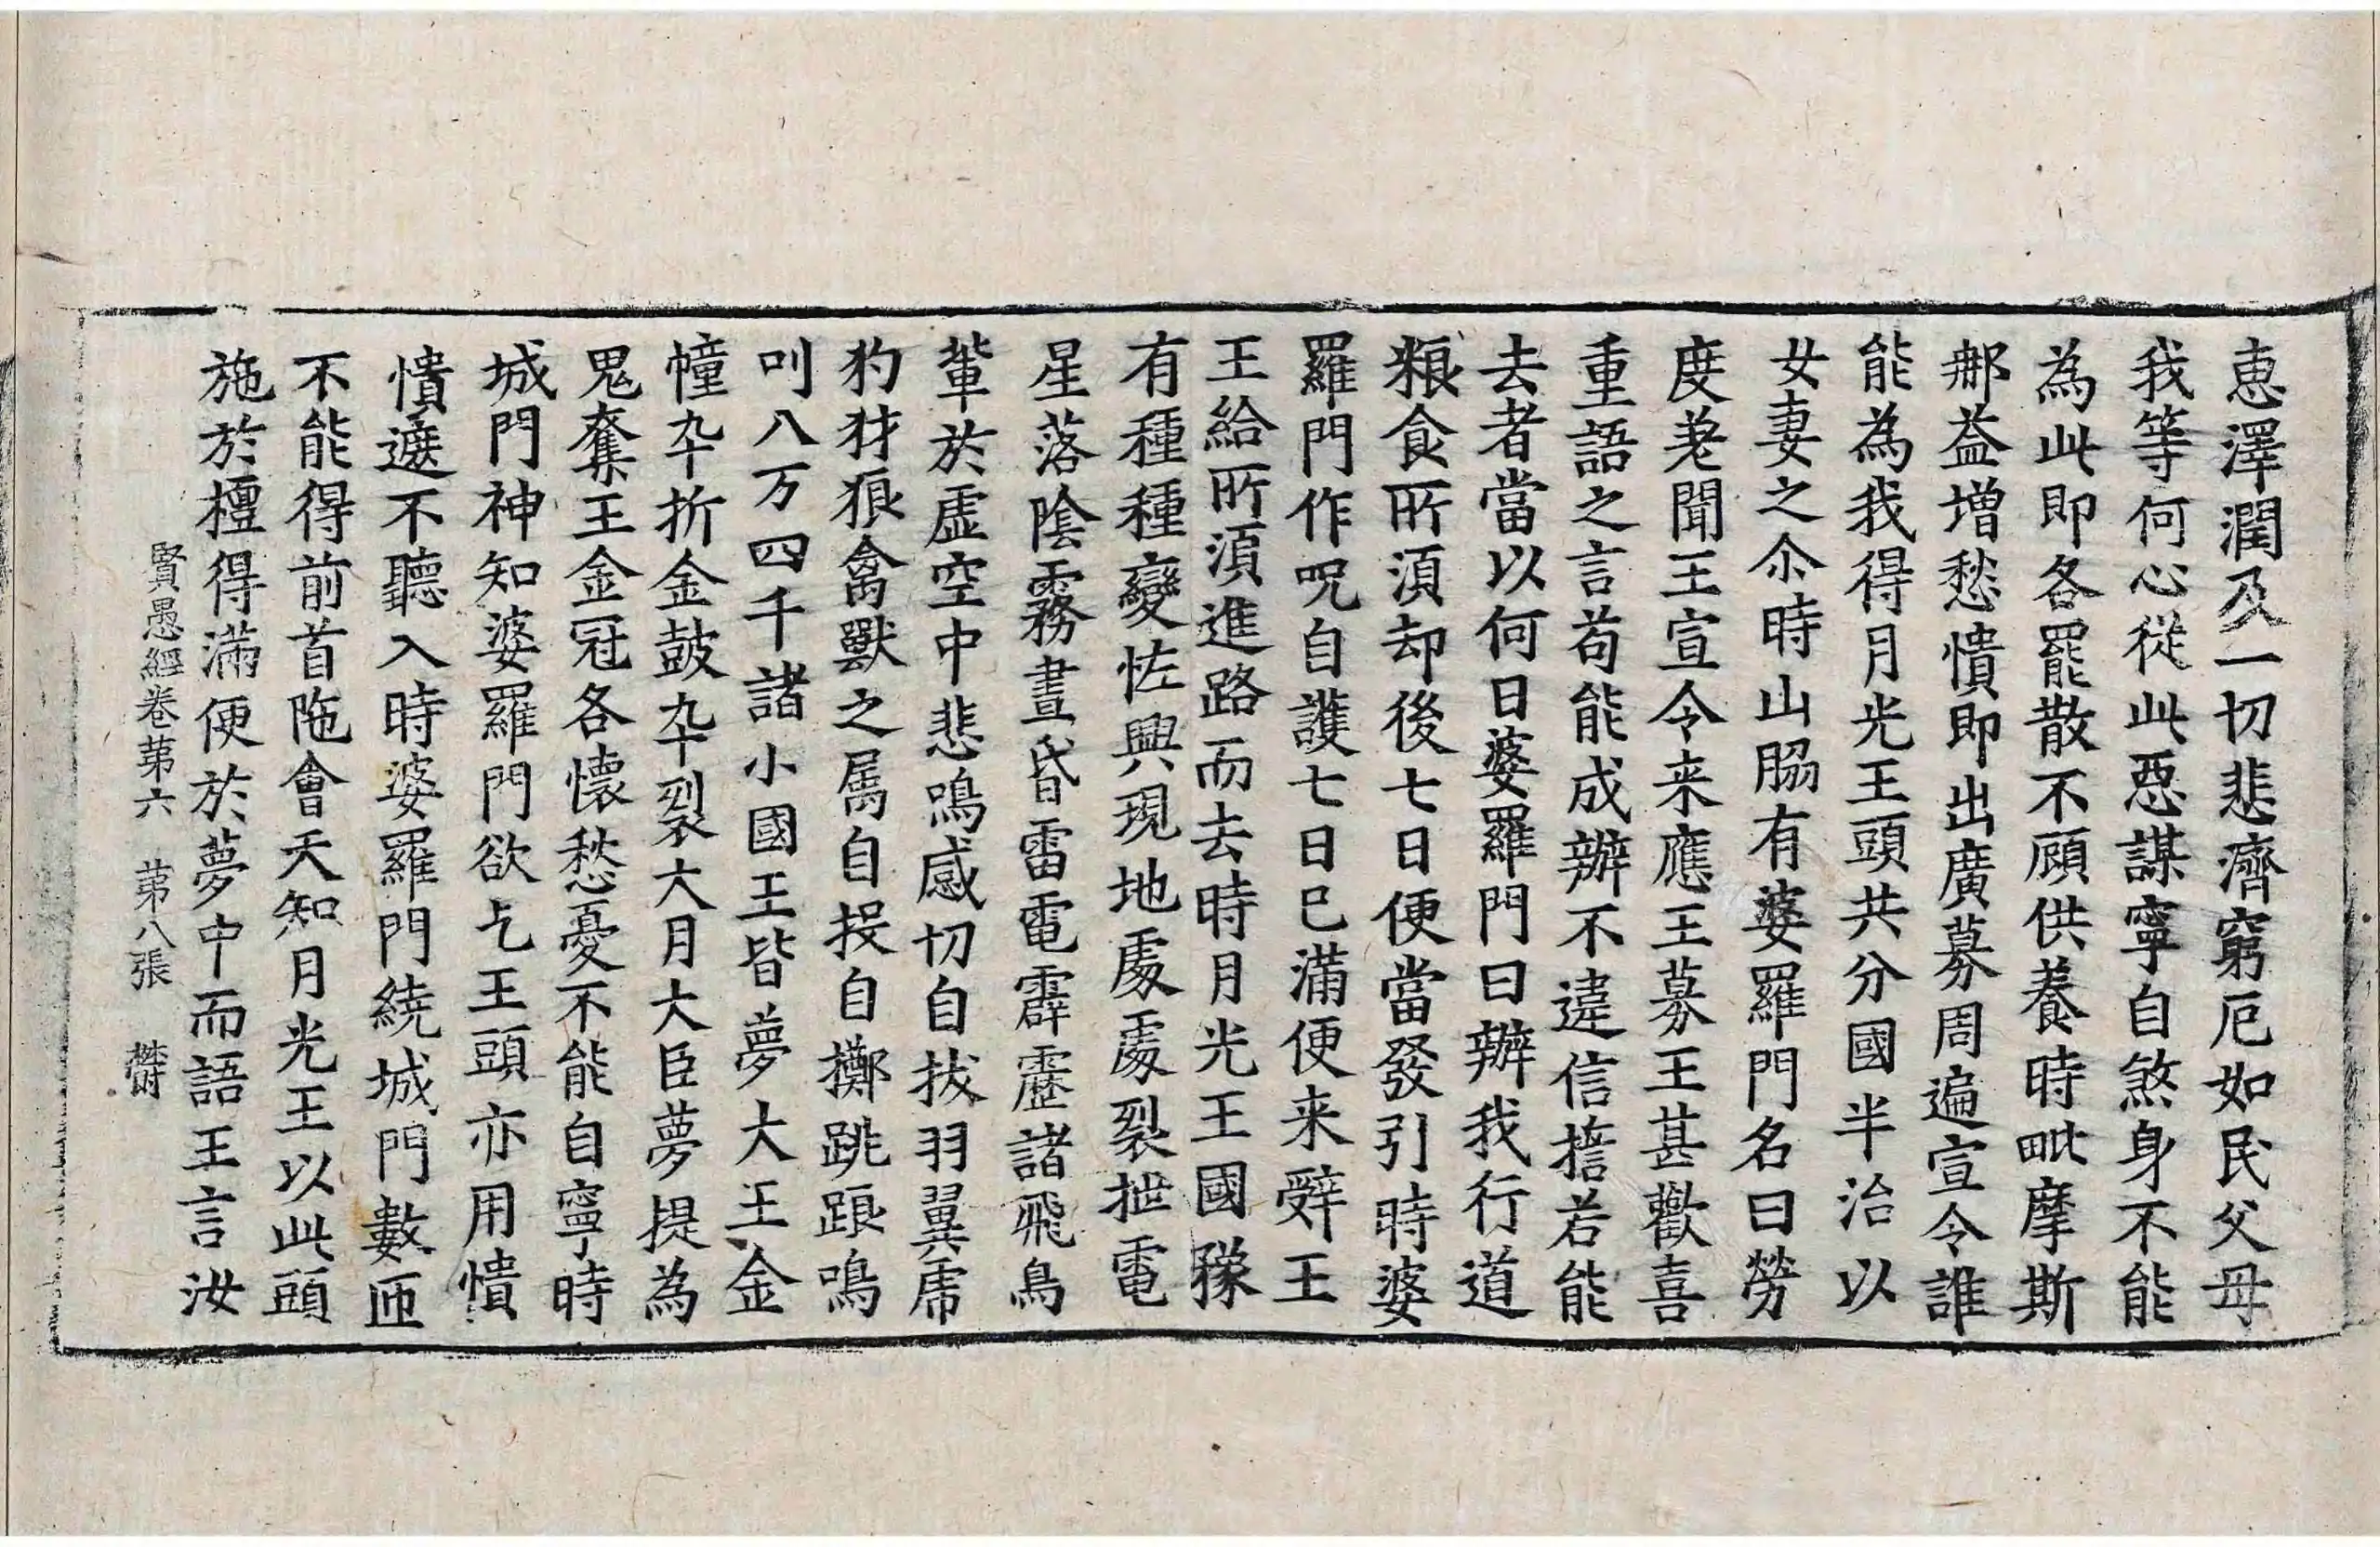 恵澤潤及一切悲濟窮厄如民父母
我等何心從此惡謀寧自煞身不能
為此即各罷散不顧供養時毗摩斯
那益増愁憒即出廣募周遍宣令誰
能為我得月光王頭共分國半治以
女妻之尒時山脇有婆羅門名曰勞
度差聞王宣令来應王募王甚歡喜
重語之言苟能成辦不違信擔若能
去者當以何日婆羅門曰辦我行道
粮食所湏却後七日便當發引時婆
羅門作呪自護七日已滿便来辤王
王給所湏進路而去時月光王國豫
有種種變恠興現地處處裂抴電
星落陰霧晝昏雷電霹靂諸飛鳥
輩於虛空中悲鳴感切自拔羽翼虎
豹犲狼禽獸之属自投自擲跳踉鳴
叫八万四千諸小國王皆夢大王金
幢卒折金鼓卒裂大月大臣夢提為
鬼奪王金冠各懷愁憂不能自寧時
城門神知婆羅門欲乞王頭亦用憒
憒遮不聽入時婆羅門繞城門數匝
不能得前首陁會天知月光王以此頭
施於檀得滿便於夢中而語王言汝
賢愚經卷第六　第八張